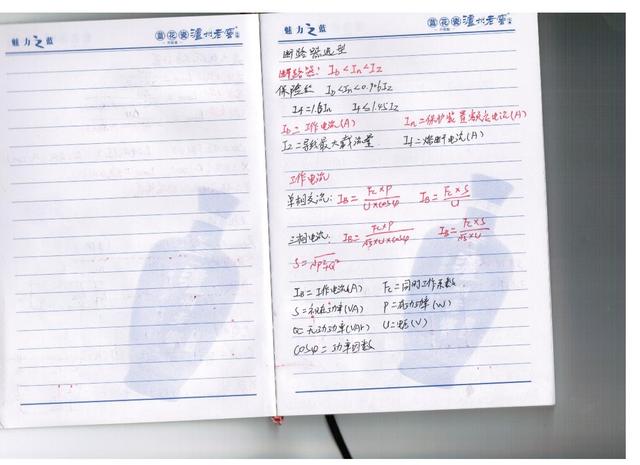 魅力之蓝
蓝花瓷泸州老窖
魅力之蓝
蓝花瓷泸州老窖
断路器选型
断路器: Ib<In<Iz
保险丝 Ib<In<0.906Iz
If=1.6In If≤1.45Iz
Ib=工作电流(A) In=保护装置额定电流(A)
Iz=导线最大载流量 If=熔断电流(A)
工作电流
单相交流: IB = Fc×P / U×cosφ IB = Fc×S / U
三相电流: IB = Fc×P / √3×U×cosφ IB = Fc×S / √3×U
S=√P²+Q²
IB=工作电流(A) Fc=同时工作系数
S=视在功率(VA) P=有功功率(W)
Q=无功功率(VAr) U=电压(V)
cosφ=功率因数